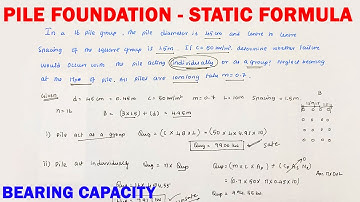 PILE FOUNDATION - STATIC FORMULA
In a 16 pile group, the pile diameter is 45cm and centre to centre
Spacing of the square group is 1.5m. If C = 50 kN/m², determine whether failure
would occur with the pile acting individually or as a group? Neglect bearing
at the tip of pile. All piles are 10m long. Take m = 0.7.
Given
d = 45cm = 0.45m C = 50 kN/m² m = 0.7 L = 10m Spacing = 1.5m
n = 16 B = (3×1.5) + (d) = 4.95m
i) Pile act as a group Qug = (C × 4B × L) = (50 × 4 × 4.95 × 10)
Qug = 9900 kN safe
ii) Pile act individually Qug = n × Qup Qup = (m × C × Ap) +
= (0.7 × 50 × π × 0.45 × 10)
BEARING CAPACITY